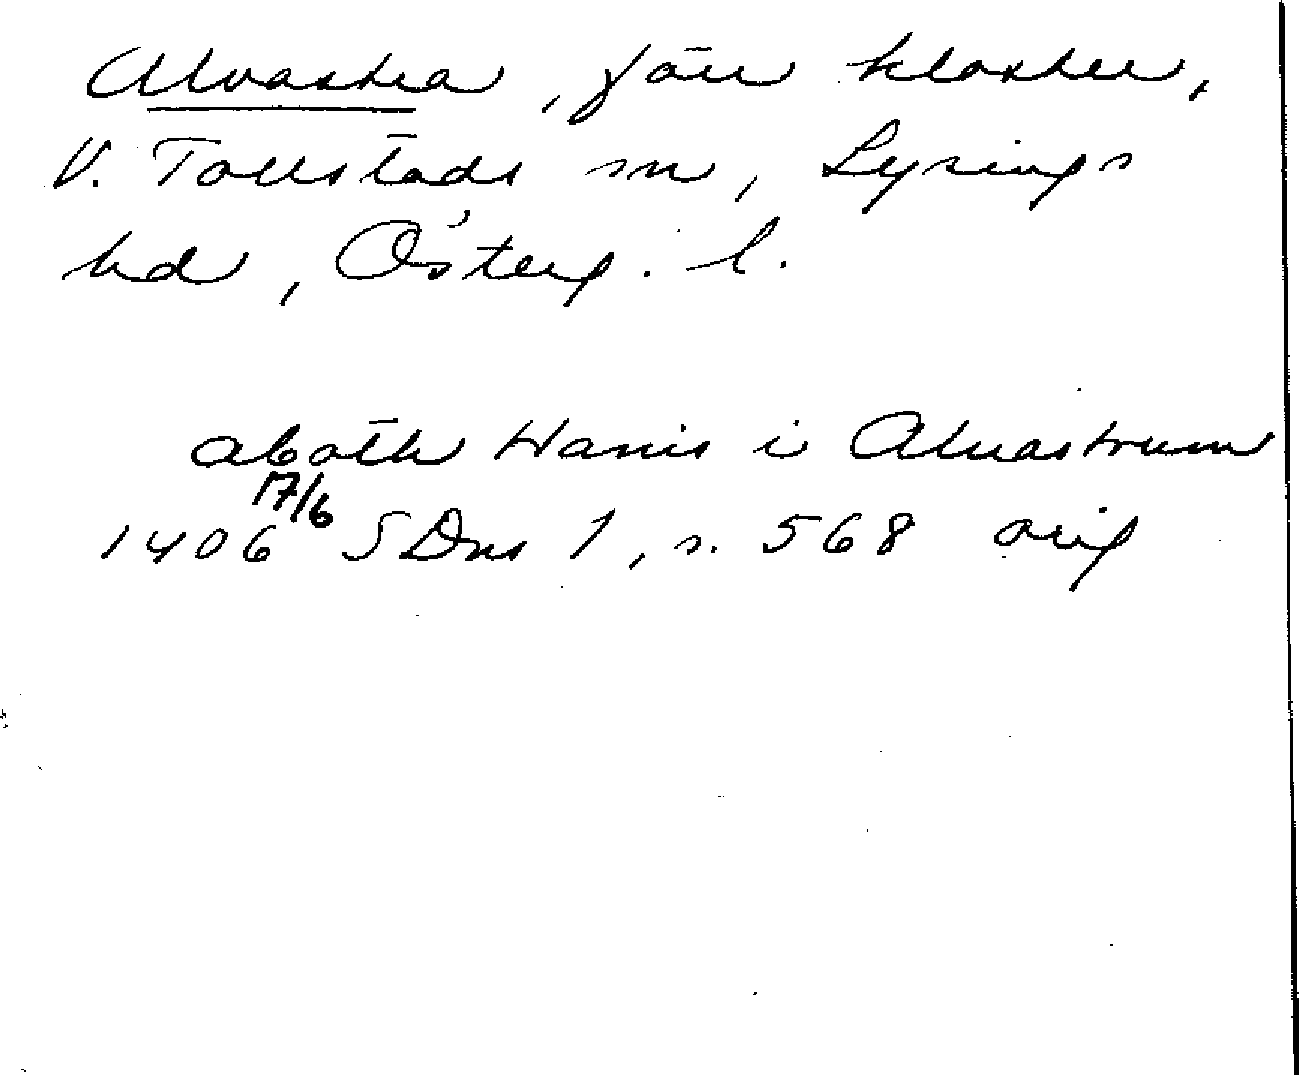 Alvastra, förr kloster,
V. Tollstads sn, Lysings
hd, Österg. l.
aboth Hanis i Aluastrum
1406 17/6 SDns 1, s. 568 orig